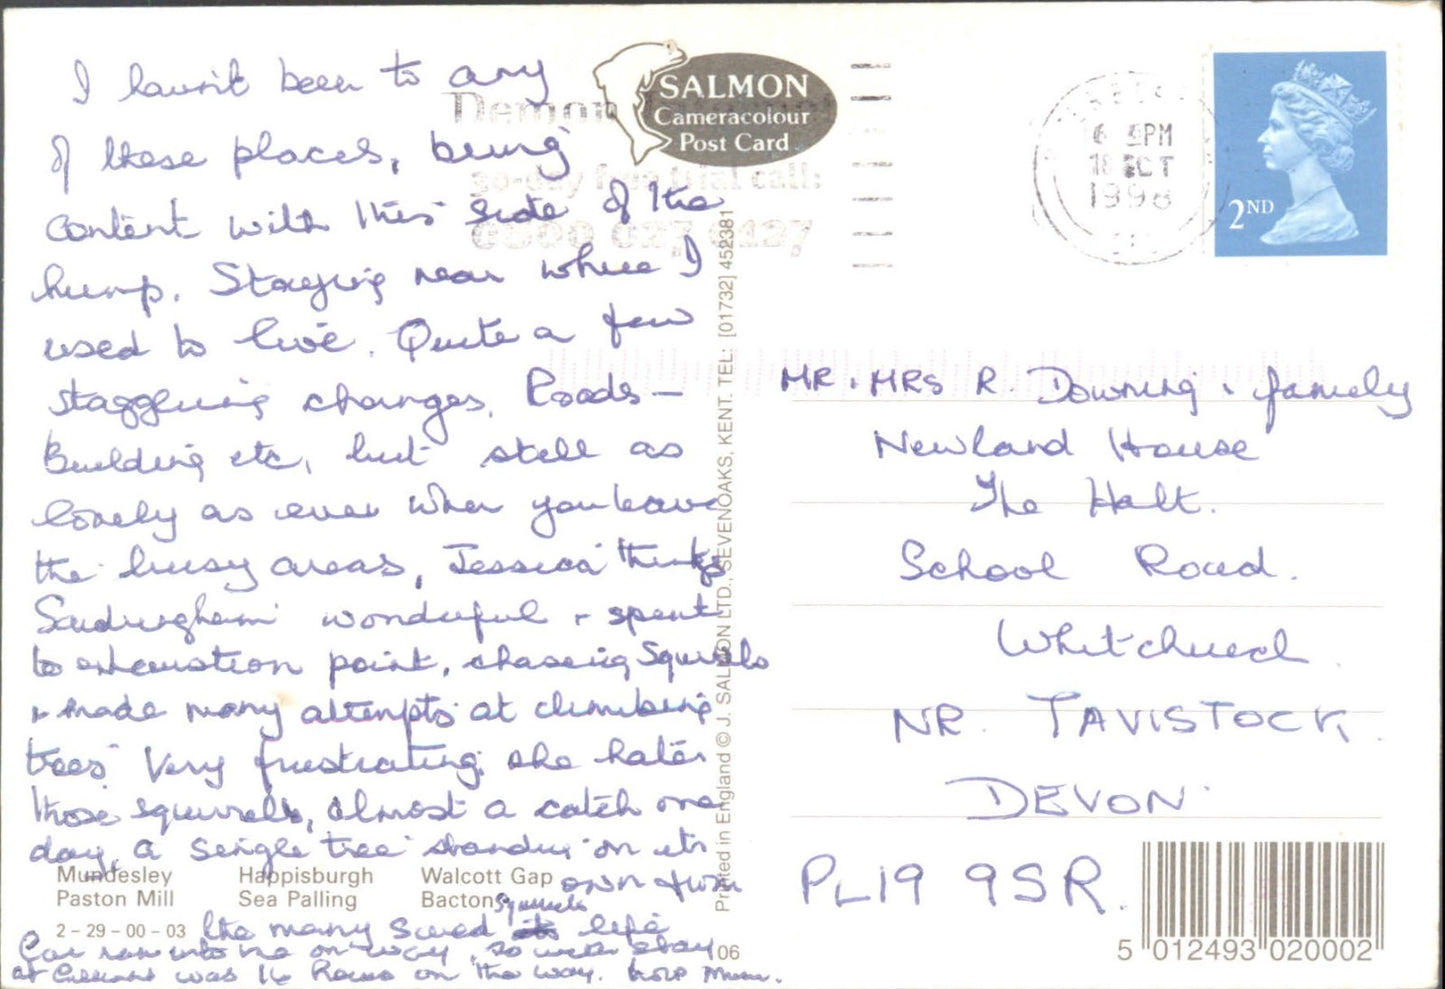 I havn't been to any
of these places, being
content with this side of the
hump. Staying near where I
used to live. Quite a few
staggering changes. Roads -
Building etc, but still as
lovely as ever when you leave
the busy areas, Jessica thinks
wonderful + spent
to exhaustion point, chasing Squirrels
+ made many attempts at climbing
trees Very frustrating she hates
those squirrels, almost a catch one
day, a single tree standing on its
own from
squirrels
the many saved life
Car ran into me on way, so
at was 16 hours on the way. Mum.
Mundesley Happisburgh Walcott Gap
Paston Mill Sea Palling Bacton
2-29-00-03
SALMON
Cameracolour
Post Card
Demon
30-day free trial call:
0800 027 9127
Printed in England © J. SALMON LTD., SEVENOAKS, KENT. TEL: [01732] 452381
06
PM
OCT
1998
2ND
MR + MRS R. Downing + family
Newland House
The Halt.
School Road.
Whitchurch
NR. TAVISTOCK.
DEVON
PL19 9SR.
5 012493 020002